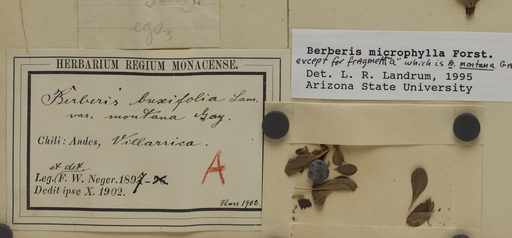 HERBARIUM REGIUM MONACENSE.
Berberis buxifolia Lam.
var. montana Gay.
Chili: Andes, Villarrica.
et det.
Leg. (F. W. Neger. 1897
Dedit ipse X. 1902.
A
Ross 1902
Berberis microphylla Forst.
except for fragment "a" which is B. montana Gay
Det. L. R. Landrum, 1995
Arizona State University